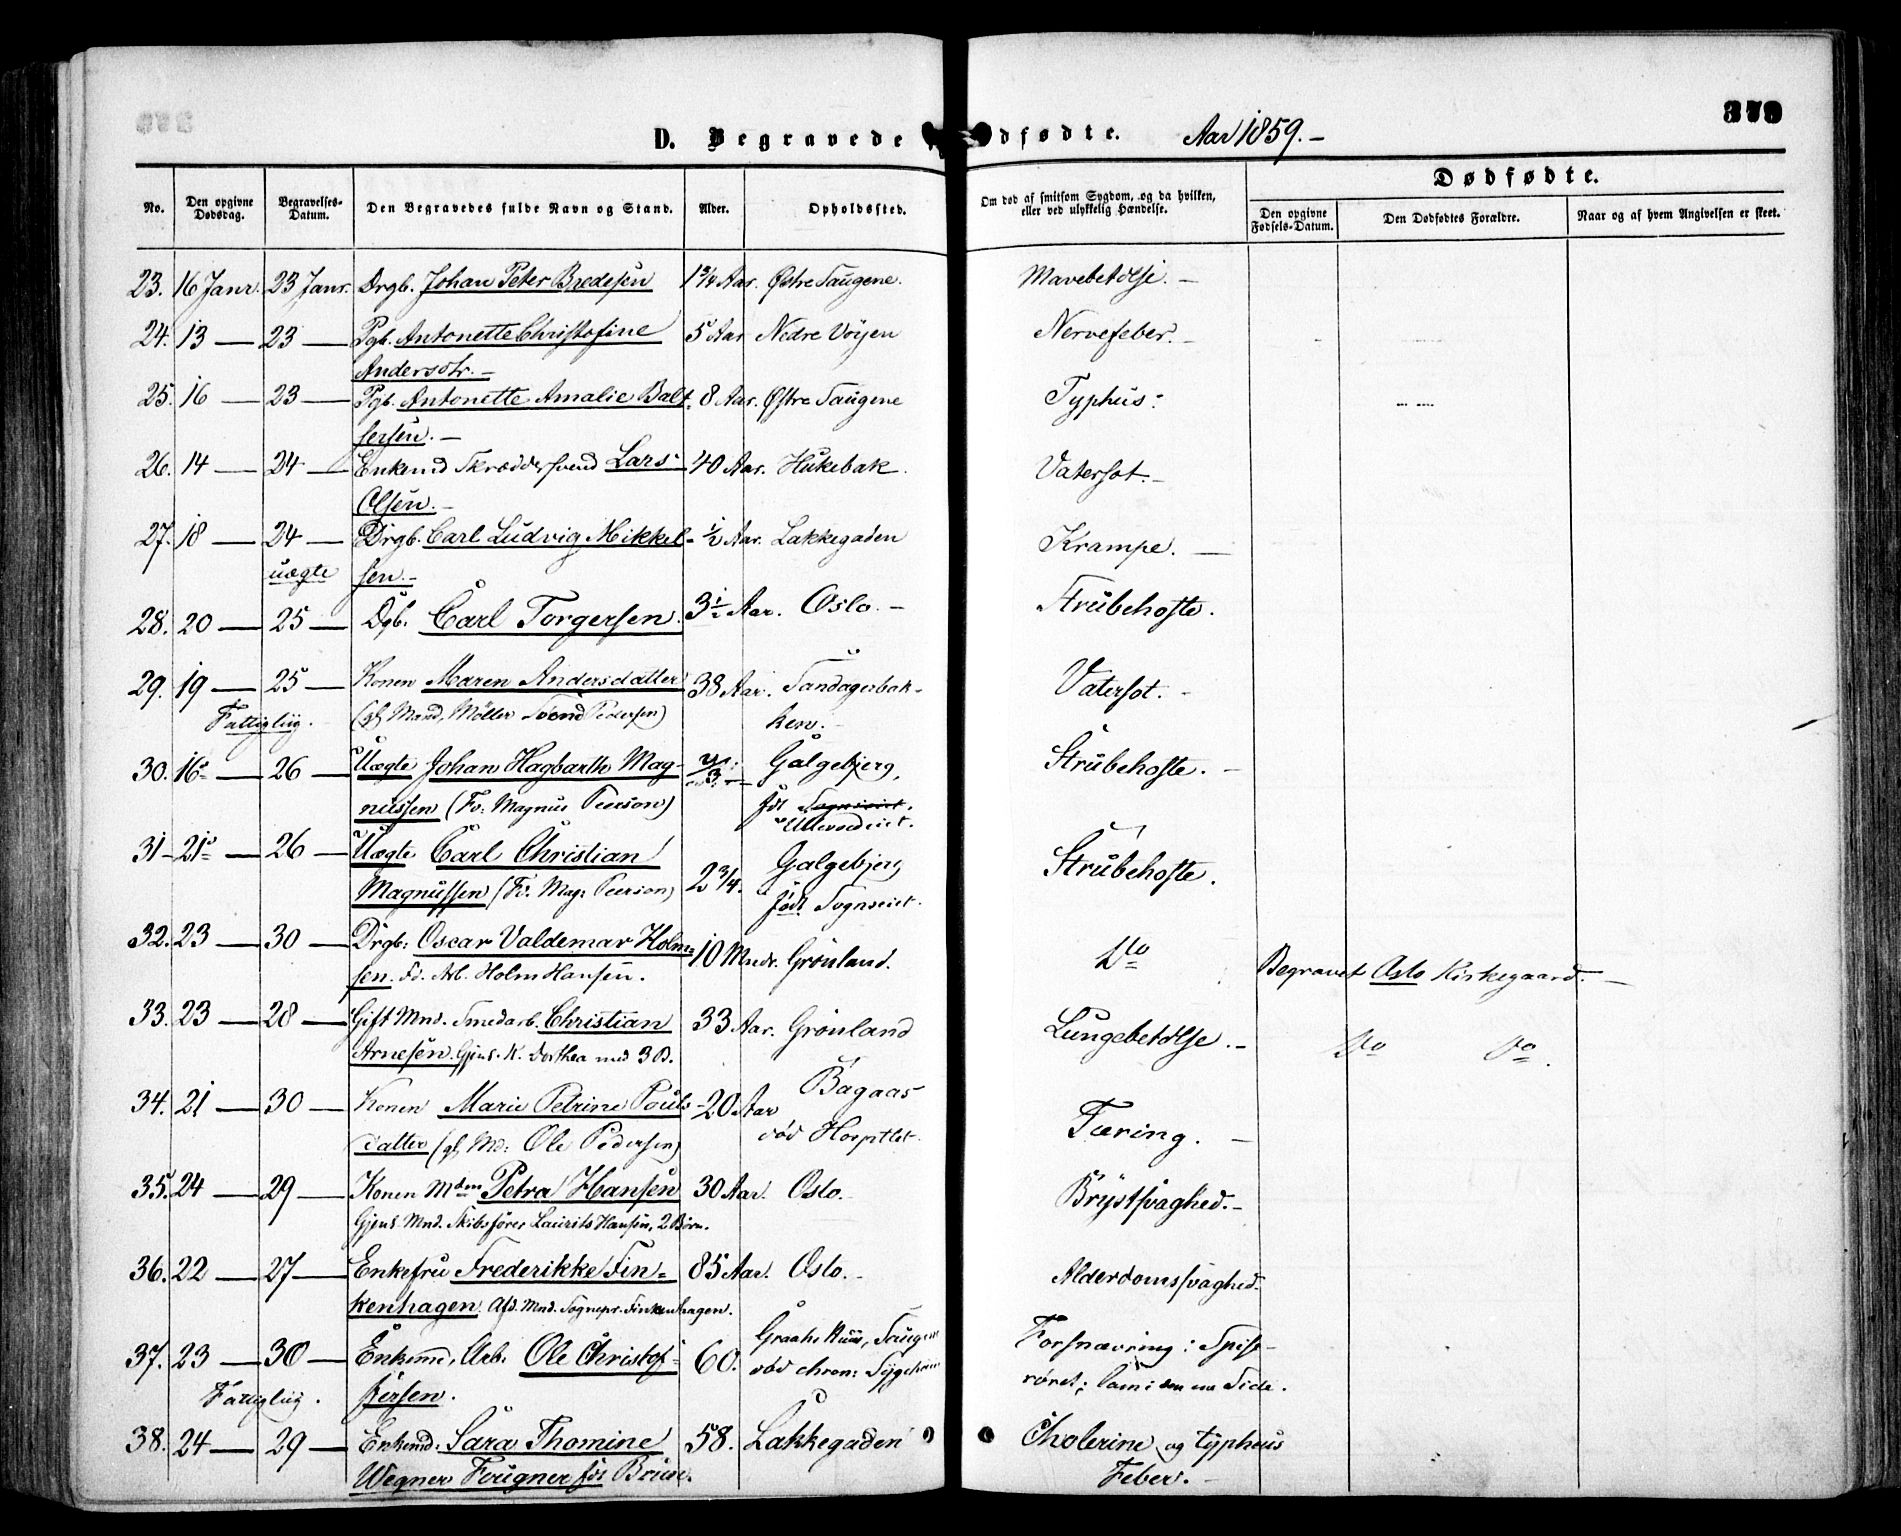 D. Begravede dfødte. Aar 1859.–
379
No.
Den opgivne Dødsdag.
Begravelses-Datum.
Den Begravedes fulde Navn og Stand.
Alder.
Opholdssted.
Om død af smitsom Sygdom, og da hvilken, eller ved ulykkelig Hændelse.
Dødfødte.
Den opgivne Fødsels-Datum.
Den Dødfødtes Forældre.
Naar og af hvem Angivelsen er skeet.
23. 16 Janr. 23 Janr. Drgb. Johan Peter Bredesen 1 3/4 Aar. Østre Saugene. Mavebetølse. –
24. 13 — 23 — Pgb. Antonette Christofine 5 Aar Nedre Vøyen Nervefeber. –
Andersdtr. –
25. 16 — 23 — Pgb. Antonette Amalie Balt- 8 Aar. Østre Saugene Typhus.
sersen. –
26. 14 — 24 — Enkemd Skræddersvend Lars 40 Aar. Hukebak. Vatersot. –
Olsen. –
27. 18 — 24 — Drgb. Carl Ludvig Mikkel- 1/2 Aar. Lakkegaden Krampe. —
uægte sen. –
28. 20 — 25 — Dgb. Carl Torgersen. 3 1/2 Aar. Oslo. – Strubehoste.
29. 19 — 25 — Konen Maren Andersdatter 38 Aar. Sandagerbak- Vatersot. –
Fattiglig. (gl. Mand, Møller Svend Pedersen) ken. –
30. 16 — 26 — Uægte Johan Hagbarth Mag- Galgebjerg, Strubehoste. –
nussen (Fv: Magnus Peerson) fdt Sognsveiet.
Ullevoldveiet.
31 – 21 — 26 — Uægte Carl Christian 2 3/4. Galgebjerg Strubehoste.
Magnussen (Fv. Mag: Peerson) født Sognsveiet.
32. 23 — 30 — Drgb: Oscar Valdemar Holm- 10 Mndr. Grönland. Do Begravet Oslo Kirkegaard. —
sen. Fd. Arb. Holm Hansen.
33. 23 — 28 — Gift Mnd. Smedarb. Christian 33 Aar. Grönland Lungebetølse. – Do Do.
Arnesen. Gjens. K. Dorthea med 3 B.
34. 21 — 30 — Konen Marie Petrine Pouls- 20 Aar Bagaas Tæring. –
datter (gl. Md: Ole Pedersen) død Hosptlet.
35. 24 — 29 — Konen Mdm Petra Hansen 30 Aar. Oslo. Brystsvaghed. –
Gjens. Mnd. Skibsfører Laurits Hansen, 2 Børn.
36. 22 — 27 — Enkefru Frederikke Fin- 85 Aar. Oslo. Alderdomssvaghed.
kenhagen. Afd. Mnd. Sognepr. Finkenhagen.
37. 23 — 30 — Enkemd, Arb. Ole Christof- 60. Graahs Huus, Saugene Forsnævring i Spise-
Fattiglig. fersen. død chron: Sygehuus røret; lam i den ene Side.
38. 24 — 29 — Enkemd: Sara Thomine 58. Lakkegaden Cholerine og typheus
Wegner Fougner fdt Bruun. Feber. –